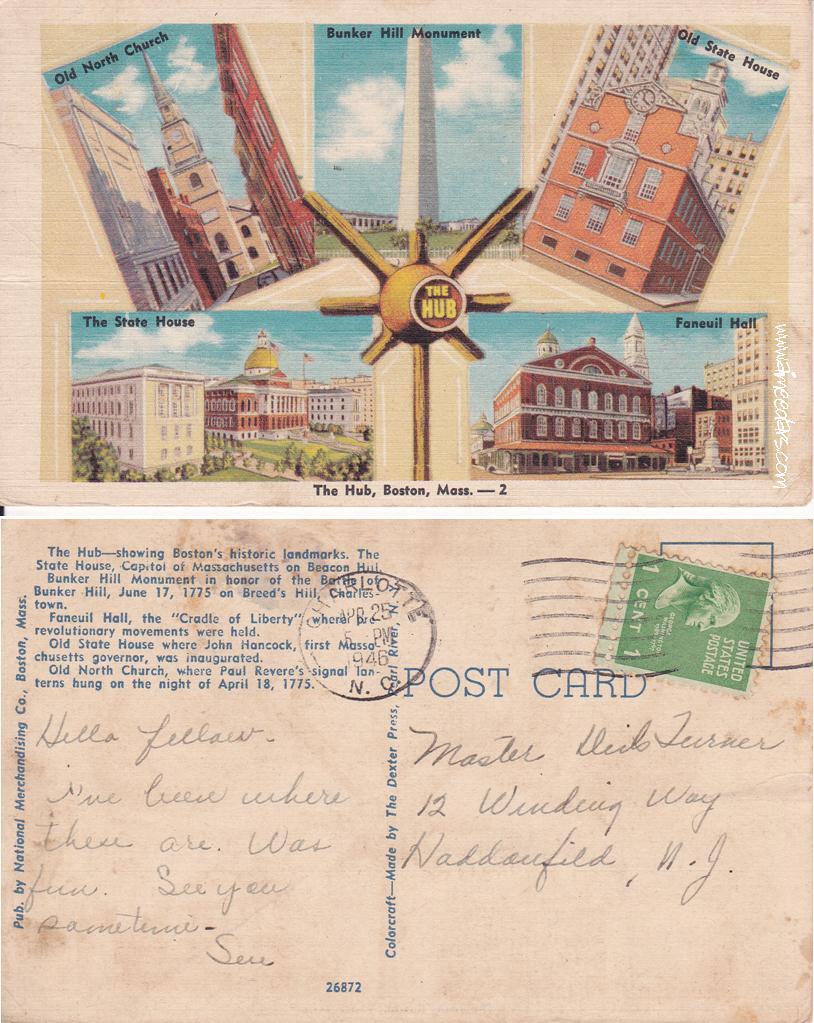 Old North Church
Bunker Hill Monument
Old State House
THE
HUB
The State House
Faneuil Hall
www.timecoderz.com
The Hub, Boston, Mass. — 2
The Hub—showing Boston's historic landmarks. The
State House, Capitol of Massachusetts on Beacon Hill.
Bunker Hill Monument in honor of the Battle of
Bunker Hill, June 17, 1775 on Breed's Hill, Charles-
town.
Faneuil Hall, the "Cradle of Liberty" where pre-
revolutionary movements were held.
Old State House where John Hancock, first Massa-
chusetts governor, was inaugurated.
Old North Church, where Paul Revere's signal lan-
terns hung on the night of April 18, 1775.
CHARLOTTE
APR 25
5 - PM
1946
N. C.
1 CENT 1
UNITED
STATES
POSTAGE
POST CARD
Pub. by National Merchandising Co., Boston, Mass.
Colorcraft—Made by The Dexter Press, Pearl River, N.
Hello fellow-
I've been where
these are. Was
fun. See you
sometime-
Master Turner
12 Winding Way
Haddonfield, N.J.
26872